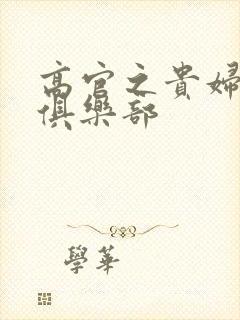 高官之貴婦
俱樂部
學華